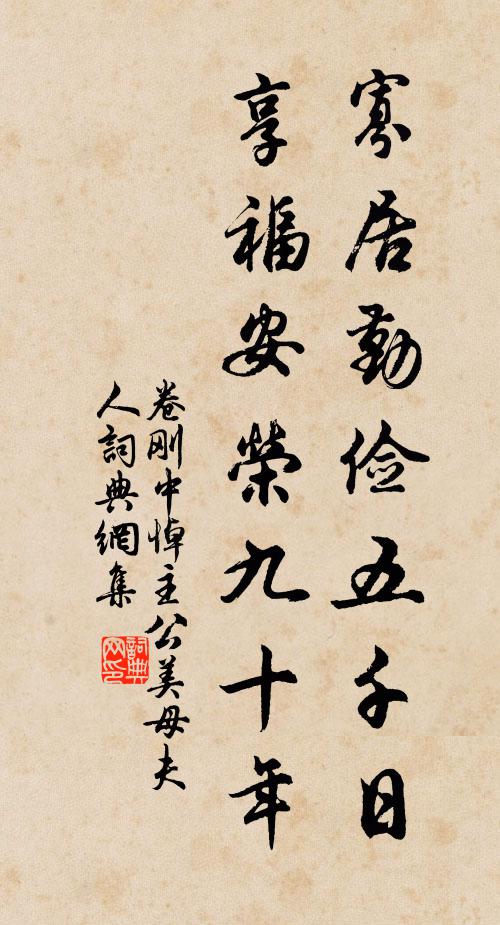 寡居勤俭五千日
享福安榮九十年
卷刚中悼主公美母夫
人詞典網集
詞典
网印